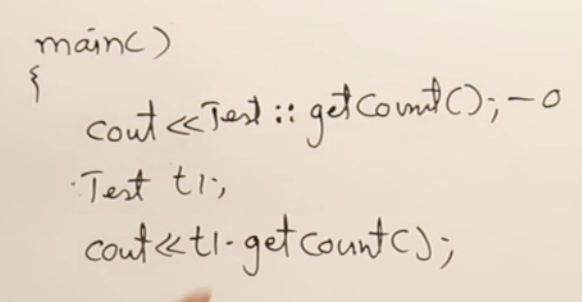 main()
{
cout<<Test::getCount();-0
Test t1;
cout<<t1.getCount();